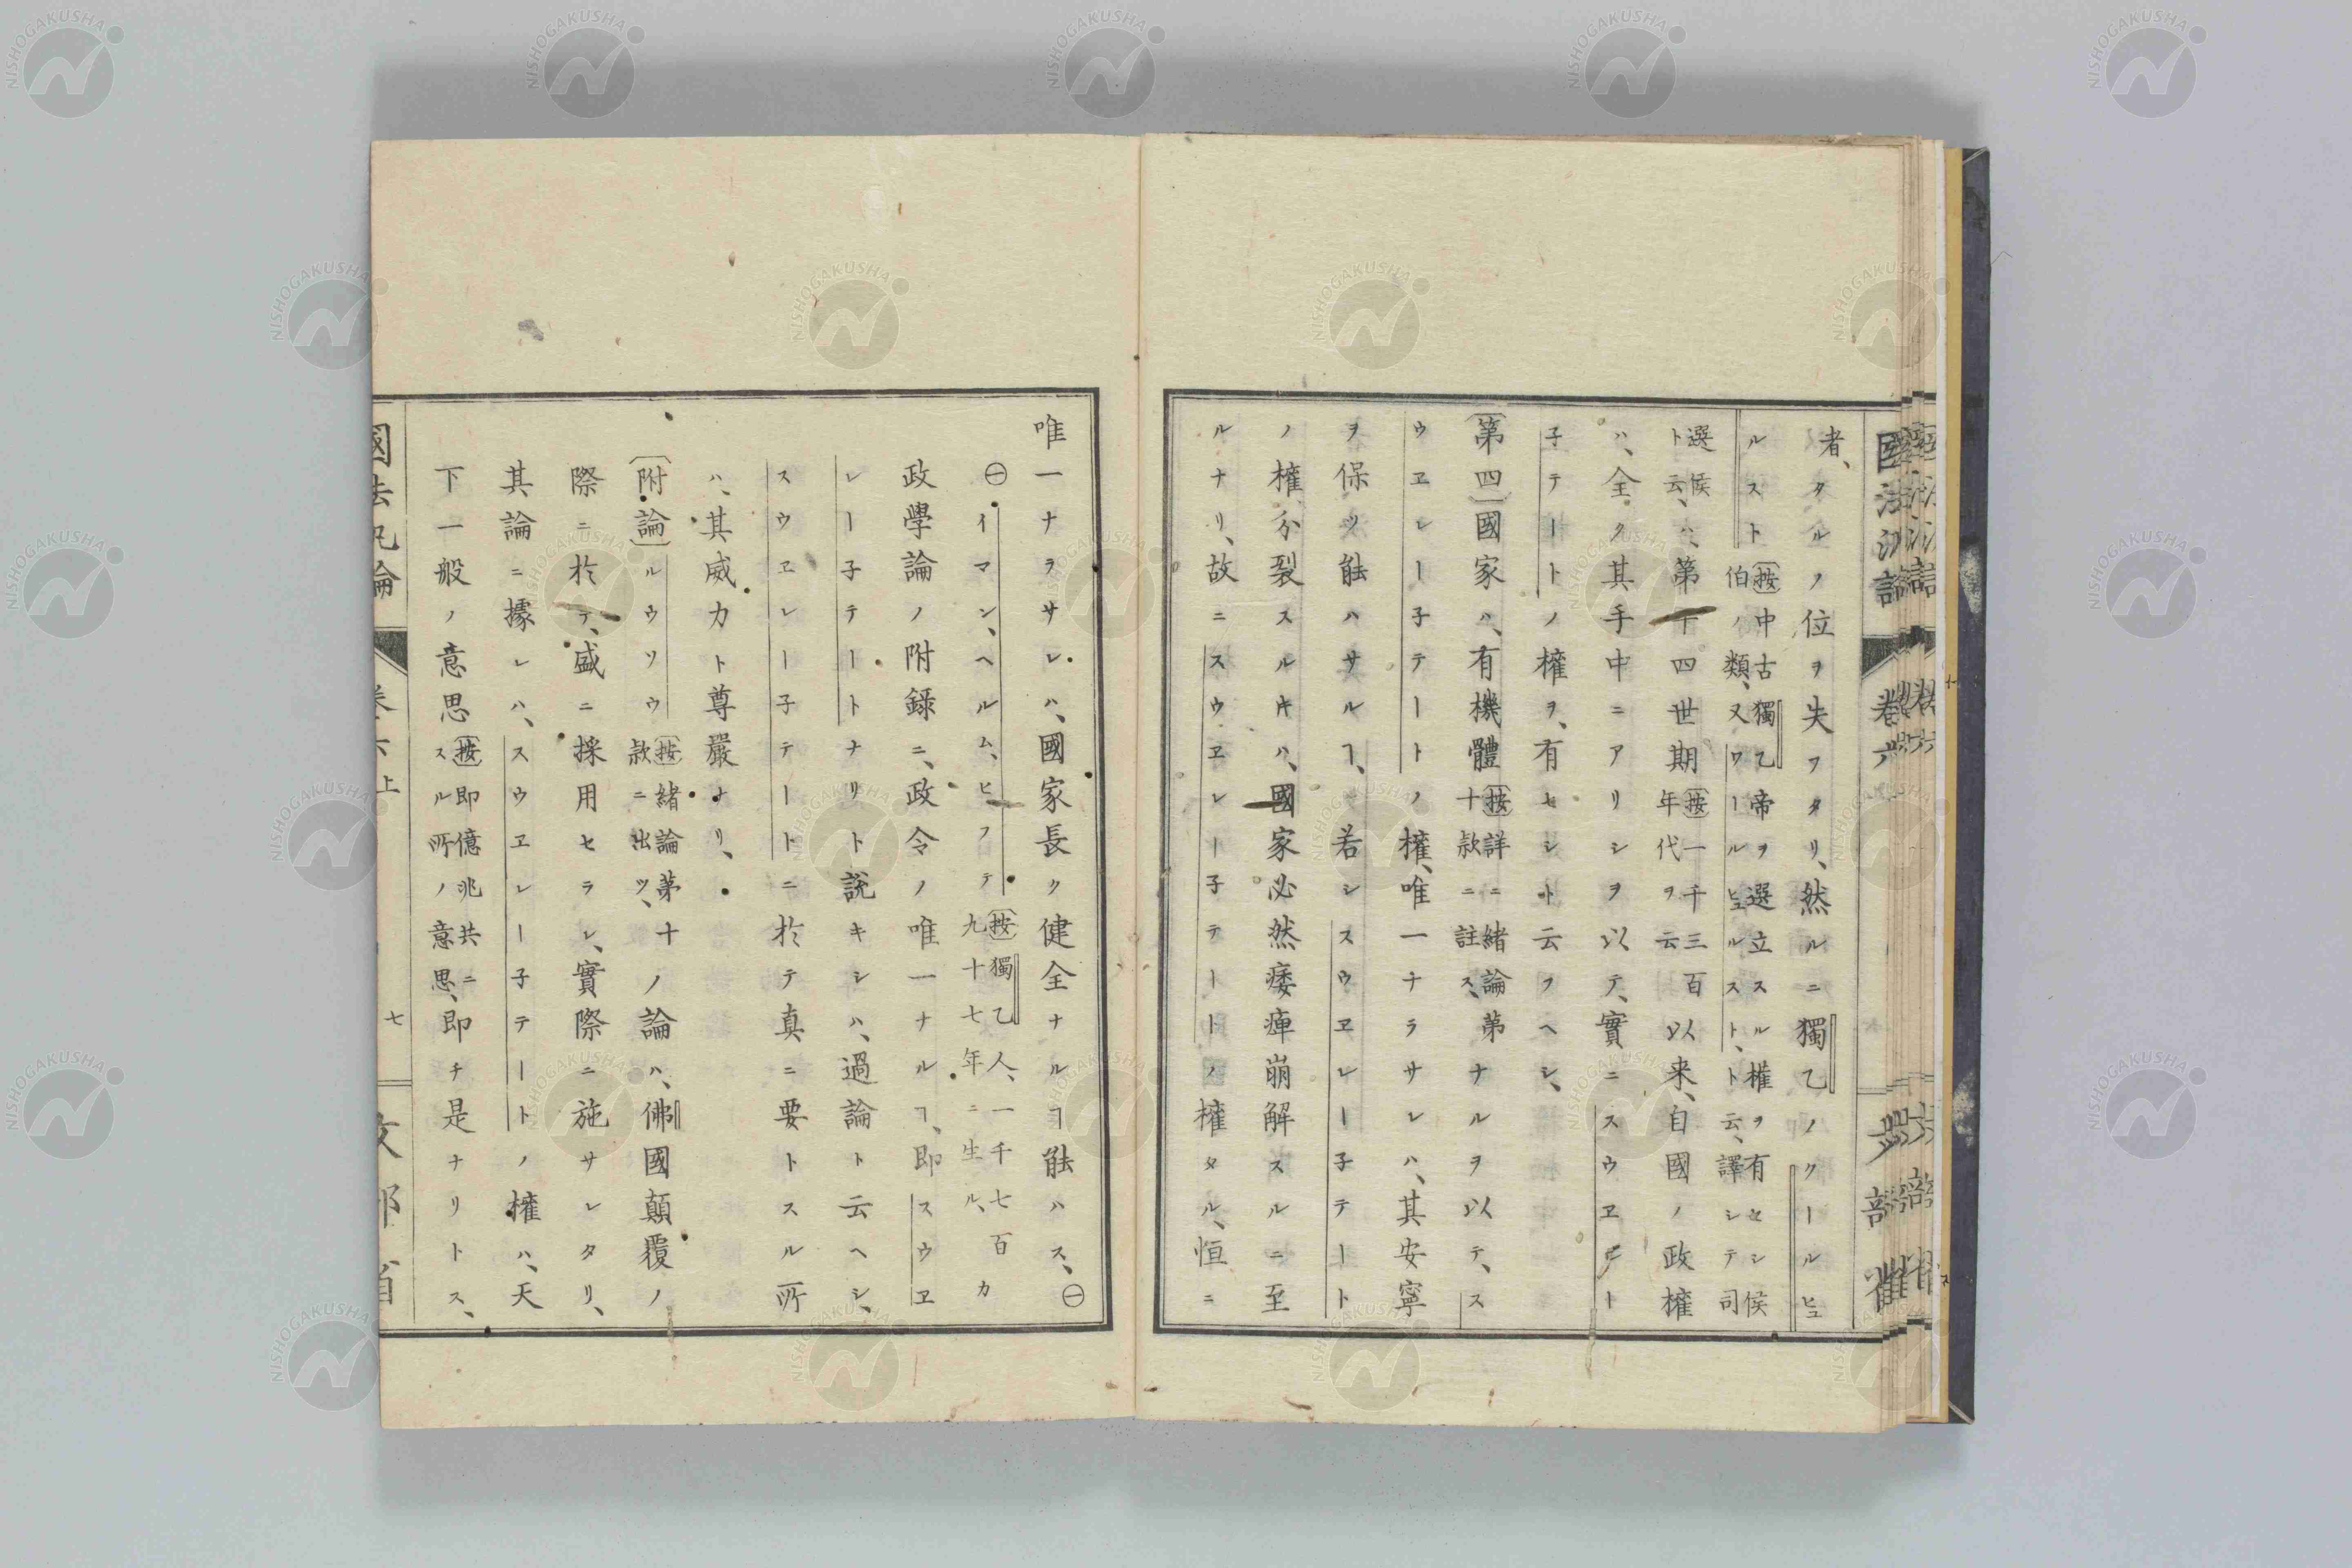 者、タルノ位ヲ失フタリ、然ルニ獨乙ノクールヒュ
ルスト〔按〕中古獨乙帝ヲ選立スル權ヲ有セシ侯
伯ノ類、又ワールヒュルスト、ト云、譯シテ司
選侯
ト云、ハ、第十四世期〔按〕一千三百
年代ヲ云以来、自國ノ政權
ハ、全ク其手中ニアリシヲ以テ、實ニスウヱレー
子テートノ權ヲ、有セシト云フヘシ、
〔第四〕國家ハ、有機體〔按〕詳ニ緒論第
十款ニ註ス、ナルヲ以テ、ス
ウヱレー子テートノ權、唯一ナラサレハ、其安寧
ヲ保ツ能ハサルヿ、若シスウヱレー子テート
ノ權、分裂スルキハ、國家必然痿痺崩解スルニ至
ルナリ、故ニスウヱレー子テートノ權タル、恒ニ
唯一ナラサレハ、國家長ク健全ナルヿ能ハス、㊀
㊀イマン、ヘルム、ヒフテ〔按〕獨乙人、一千七百
九十七年ニ生ル、カ
政學論ノ附録ニ、政令ノ唯一ナルヿ、即スウヱ
レー子テートナリト説キシハ、過論ト云ヘシ、
スウヱレー子テートニ於テ真ニ要トスル所
ハ、其威力ト尊嚴ナリ、
〔附論〕ルウソウ〔按〕緒論第十
款ニ出ツ、ノ論ハ、佛國顛覆ノ
際ニ於テ、盛ニ採用セラレ、實際ニ施サレタリ、
其論ニ據レハ、スウヱレー子テートノ權ハ、天
下一般ノ意思〔按〕即億兆共ニ
スル所ノ意思、即チ是ナリトス、
國法汎論 卷六上 七 文部省
NISHOGAKUSHA